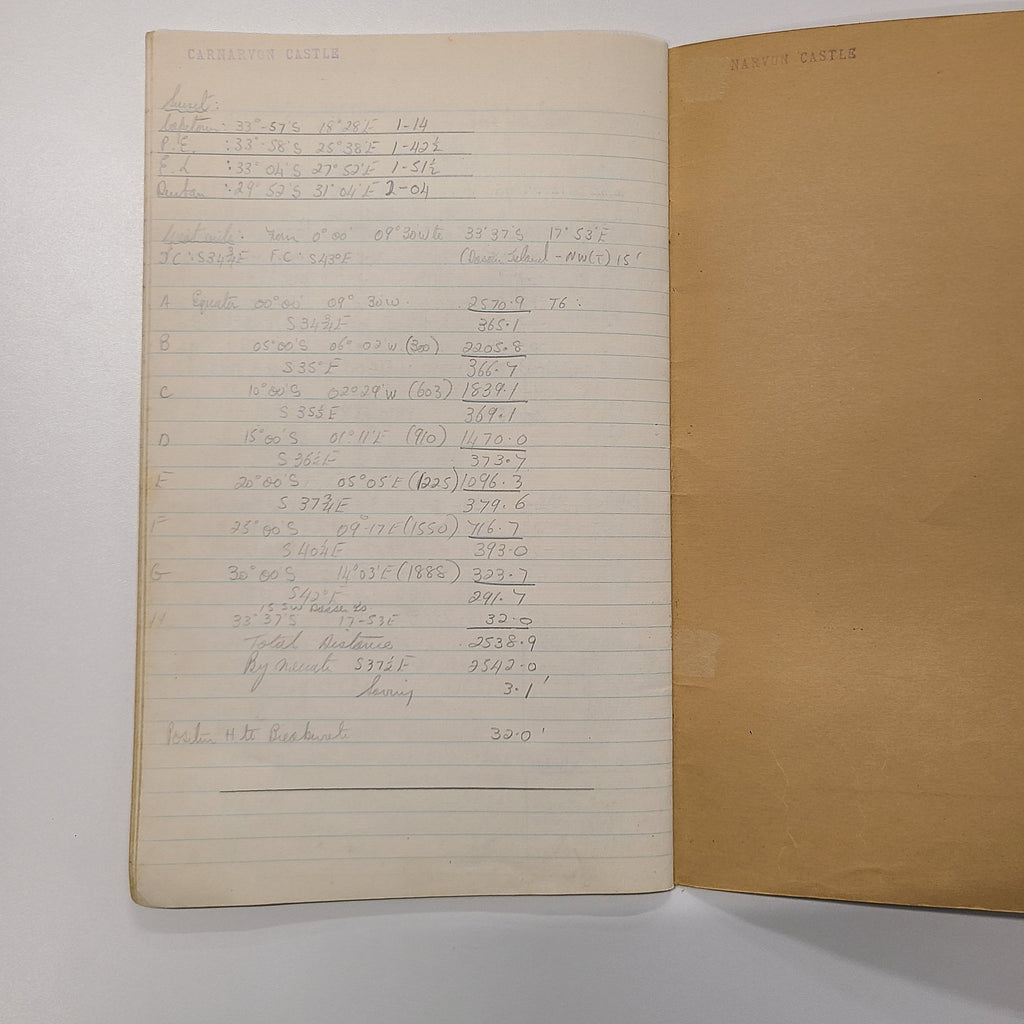 CARNARVON CASTLE
NARVON CASTLE
Sunset:
Capetown: 33°-57'S 18°28'E 1-14
P.E. : 33°-58'S 25°38'E 1-42½
E.L : 33° 04'S 27°52'E 1-51½
Durban : 29° 52'S 31°04'E 2-04
From 0°00' 09°30W to 33°37'S 17°53'E
I.C: S34¾E F.C: S43°E (Dassen Island - NW(T) 15'
A Equator 00°00' 09° 30'W. 2570.9 T6:
S34¾E 365.1
B 05°00'S 06° 02'W (300) 2205.8
S35°E 366.7
C 10°00'S 02°29'W (603) 1839.1
S 35½E 369.1
D 15°00'S 01°11'E (910) 1470.0
S 36½E 373.7
E 20°00'S 05°05'E (1225) 1096.3
S 37¾E 379.6
F 25°00'S 09°-17E (1550) 716.7
S40¼E 393.0
G 30°00'S 14°03'E (1888) 323.7
S42°E 291.7
15 SW Dassen Is
H 33°37'S 17-53E 32.0
Total Distance 2538.9
By Mercator S37½E 2542.0
Saving 3.1'
Position H to Breakwater 32.0'